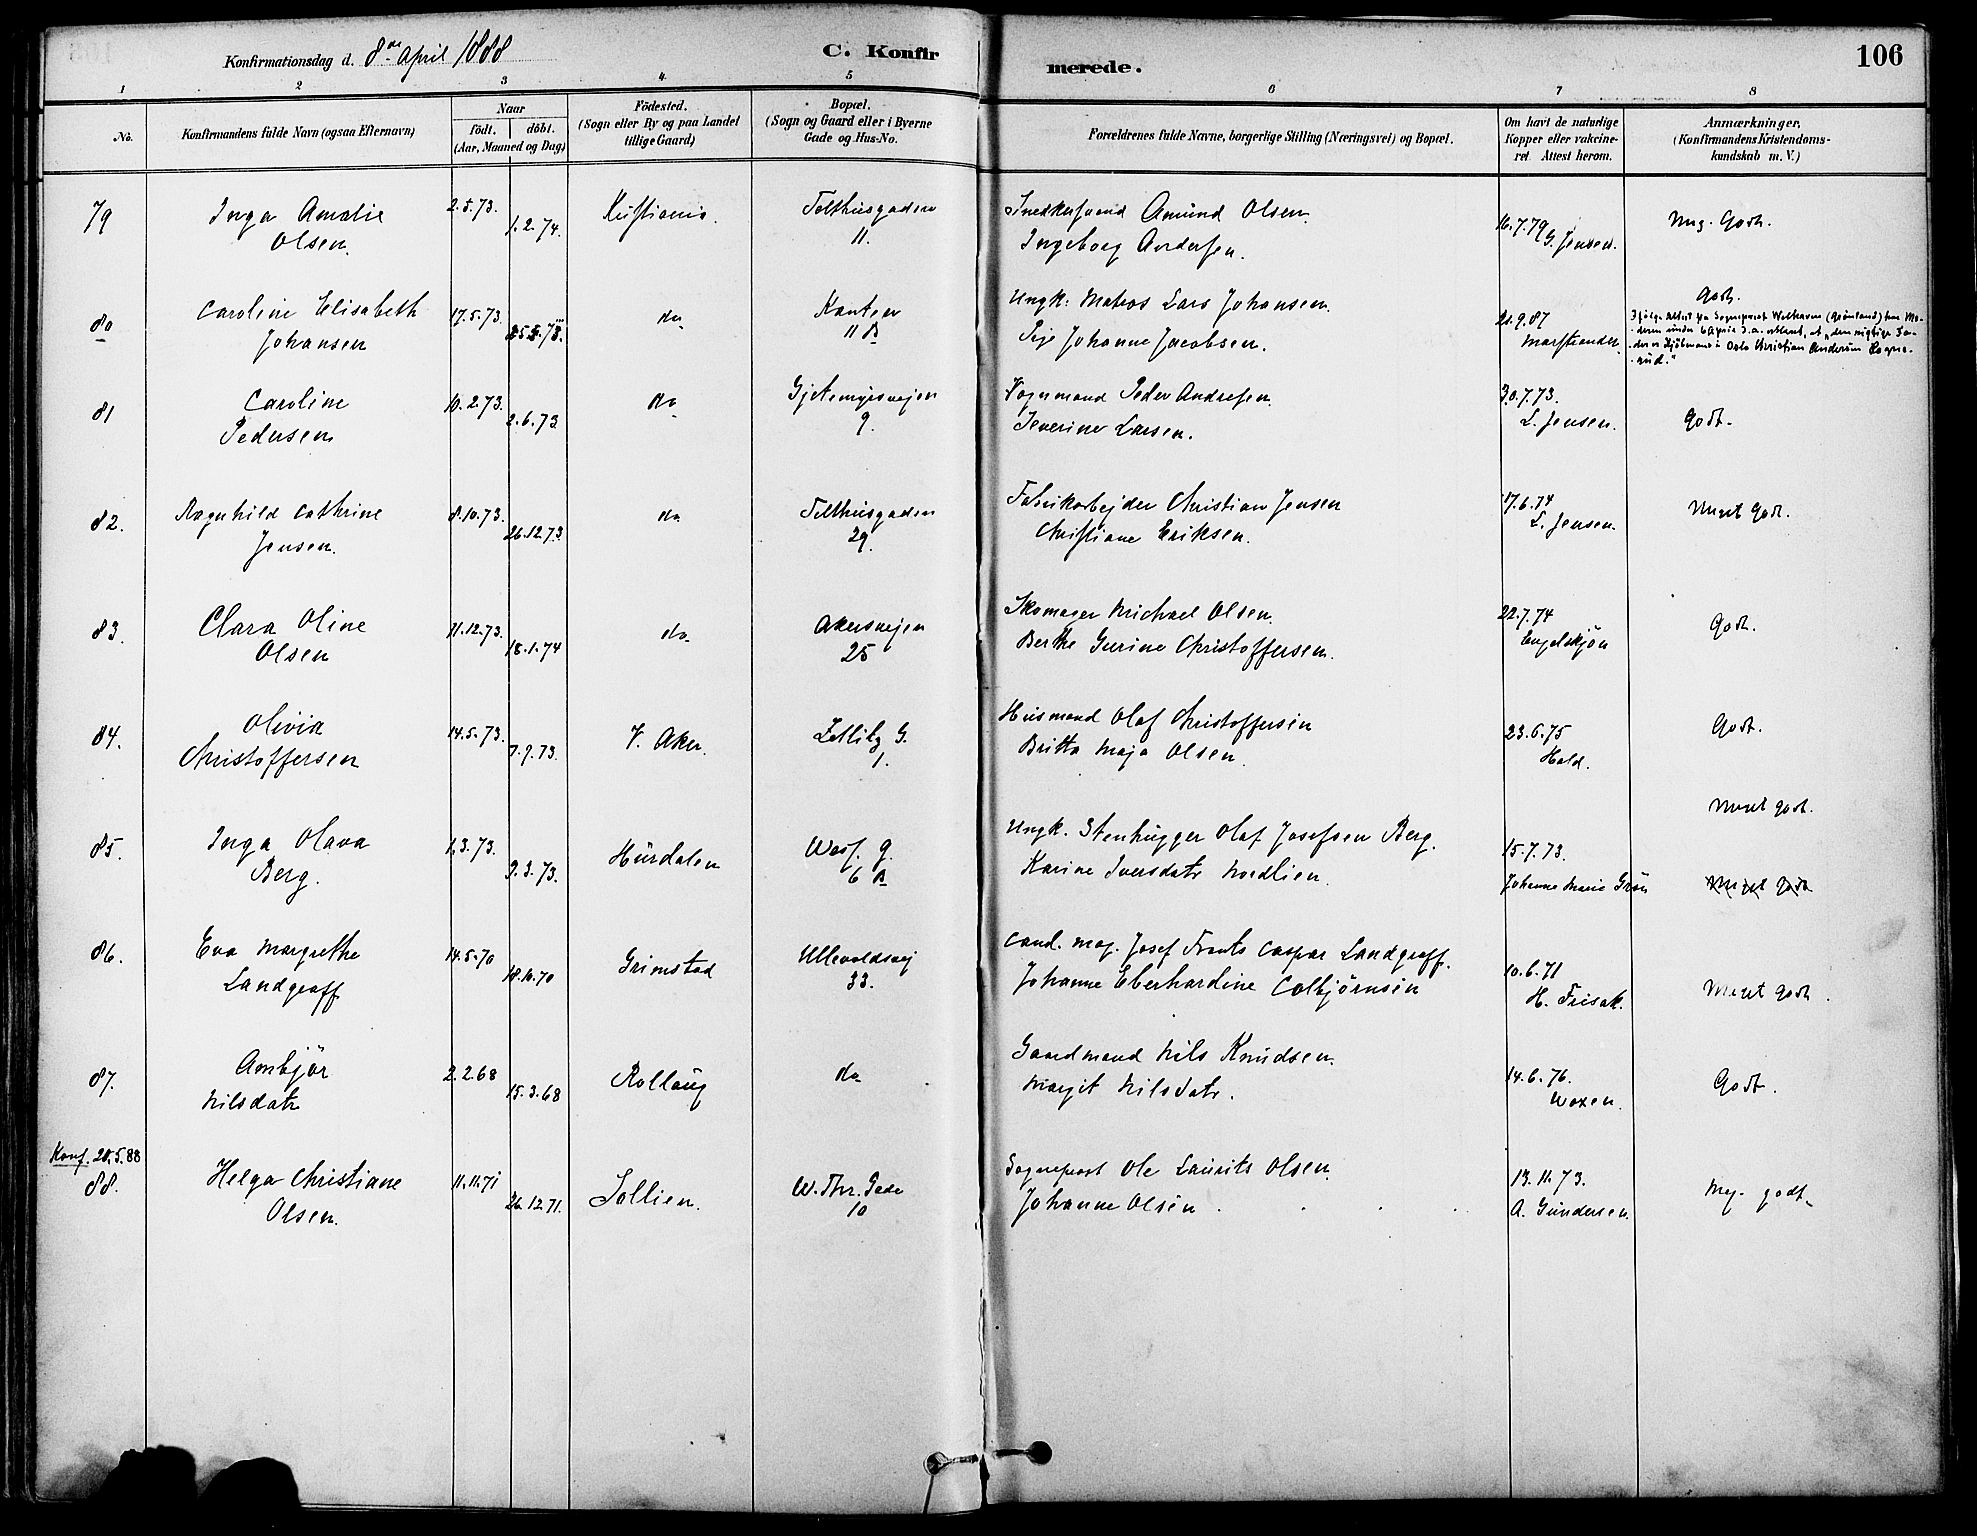 106
Konfirmationsdag d. 8de April 1888
C. Konfirmerede.
1 2 3 4 5 6 7 8
No.
Konfirmandens fulde Navn (ogsaa Efternavn)
Naar
födt. döbt.
(Aar, Maaned og Dag)
Födested.
(Sogn eller By og paa Landet
tillige Gaard)
Bopæl.
(Sogn og Gaard eller i Byerne
Gade og Hus-No.
Forældrenes fulde Navne, borgerlige Stilling (Næringsvei) og Bopæl.
Om havt de naturlige
Kopper eller vakcine-
ret Attest herom.
Anmærkninger,
(Konfirmandens Kristendoms-
kundskab m. V.)
79 Inga Amalie 2.5.73. Kristiania. Telthusgaden Snedkersvend Amund Olsen. 16.7.79 Mcg. Godt.
Olsen. 1.2.74. 11. Ingeborg Andersen. G. Jensen.
80 Caroline Elisabeth 17.5.73. do Ungk. Matros Lars Johansen. 21.9.87 Godt.
Johansen 11 B Johanne Jacobsen. Marstrander.
Ifölge Attest fra Sogneprest Welhaven (Grönland) har Mo-
deren under 6 April d.a. erklæret, at "den rigtige Fa-
der er Hjulmand i Oslo Christian Andersen Rogne-
rud."
81 Caroline 10.2.73. do Gjetemyrsvejen Vognmand Peder Andresen. 30.7.73.
Pedersen 2.6.73 9. Severine Larsen. L. Jensen. Godt.
82. Ragnhild Cathrine 8.10.73. do Telthusgaden Fabrikarbejder Christian Jensen 17.6.74 Meget Godt.
Jensen. 26.12.73 29. Christiane Eriksen. L. Jensen.
83. Clara Oline 11.12.73. do Akersvejen Skomager Michael Olsen. 22.7.74 Godt.
Olsen 18.1.74 25 Berthe Gurine Christoffersen. Engelskjön
84. Olivia 14.5.73. V. Aker. Zetlitz G. Husmand Olaf Christoffersen 23.6.75 Godt.
Christoffersen 7.9.73. 1. Britta Maja Olsen. Hald.
85. Inga Olava 1.3.73. Hurdalen Wess. g. Ungk. Stenhugger Olaf Josefsen Berg. 15.7.73. Meget godt.
Berg. 9.3.73. 6 B Karine Iversdatr Nordlien. Johanne Marie Grön Meget godt
86. Eva Margrethe 14.5.70 Grimstad Ullevoldsvej Cand. mag. Josef Frants Caspar Landgraff. 10.6.71
Landgraff 18.10.70 33. Johanne Eberhardine Colbjörnsen H. Frisak. Meget Godt.
87. Ambjör 2.2.68 Rollaug do Gaardmand Nils Knudsen. 14.6.76. Godt.
Nilsdatr 15.3.68 Margit Nilsdatr. Woxen.
Konf. 20.5.88
88. Helga Christiane 11.11.71 Sollien. W. Thr. Gade Sogneprest Ole Laurits Olsen. 13.11.73. Meg. godt.
Olsen. 26.12.71. 10 Johanne Olsen. A. Gundersen.